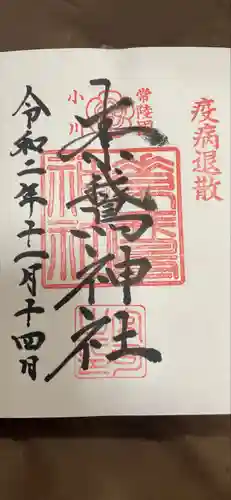 疫病退散
常陸国
小川
素鵞神社
令和二年十一月十四日